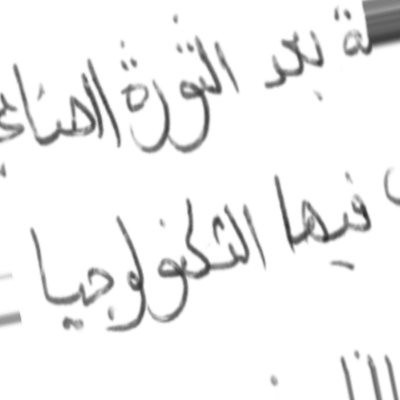 بعد الثورة الصناع
فيها التكنولوجيا